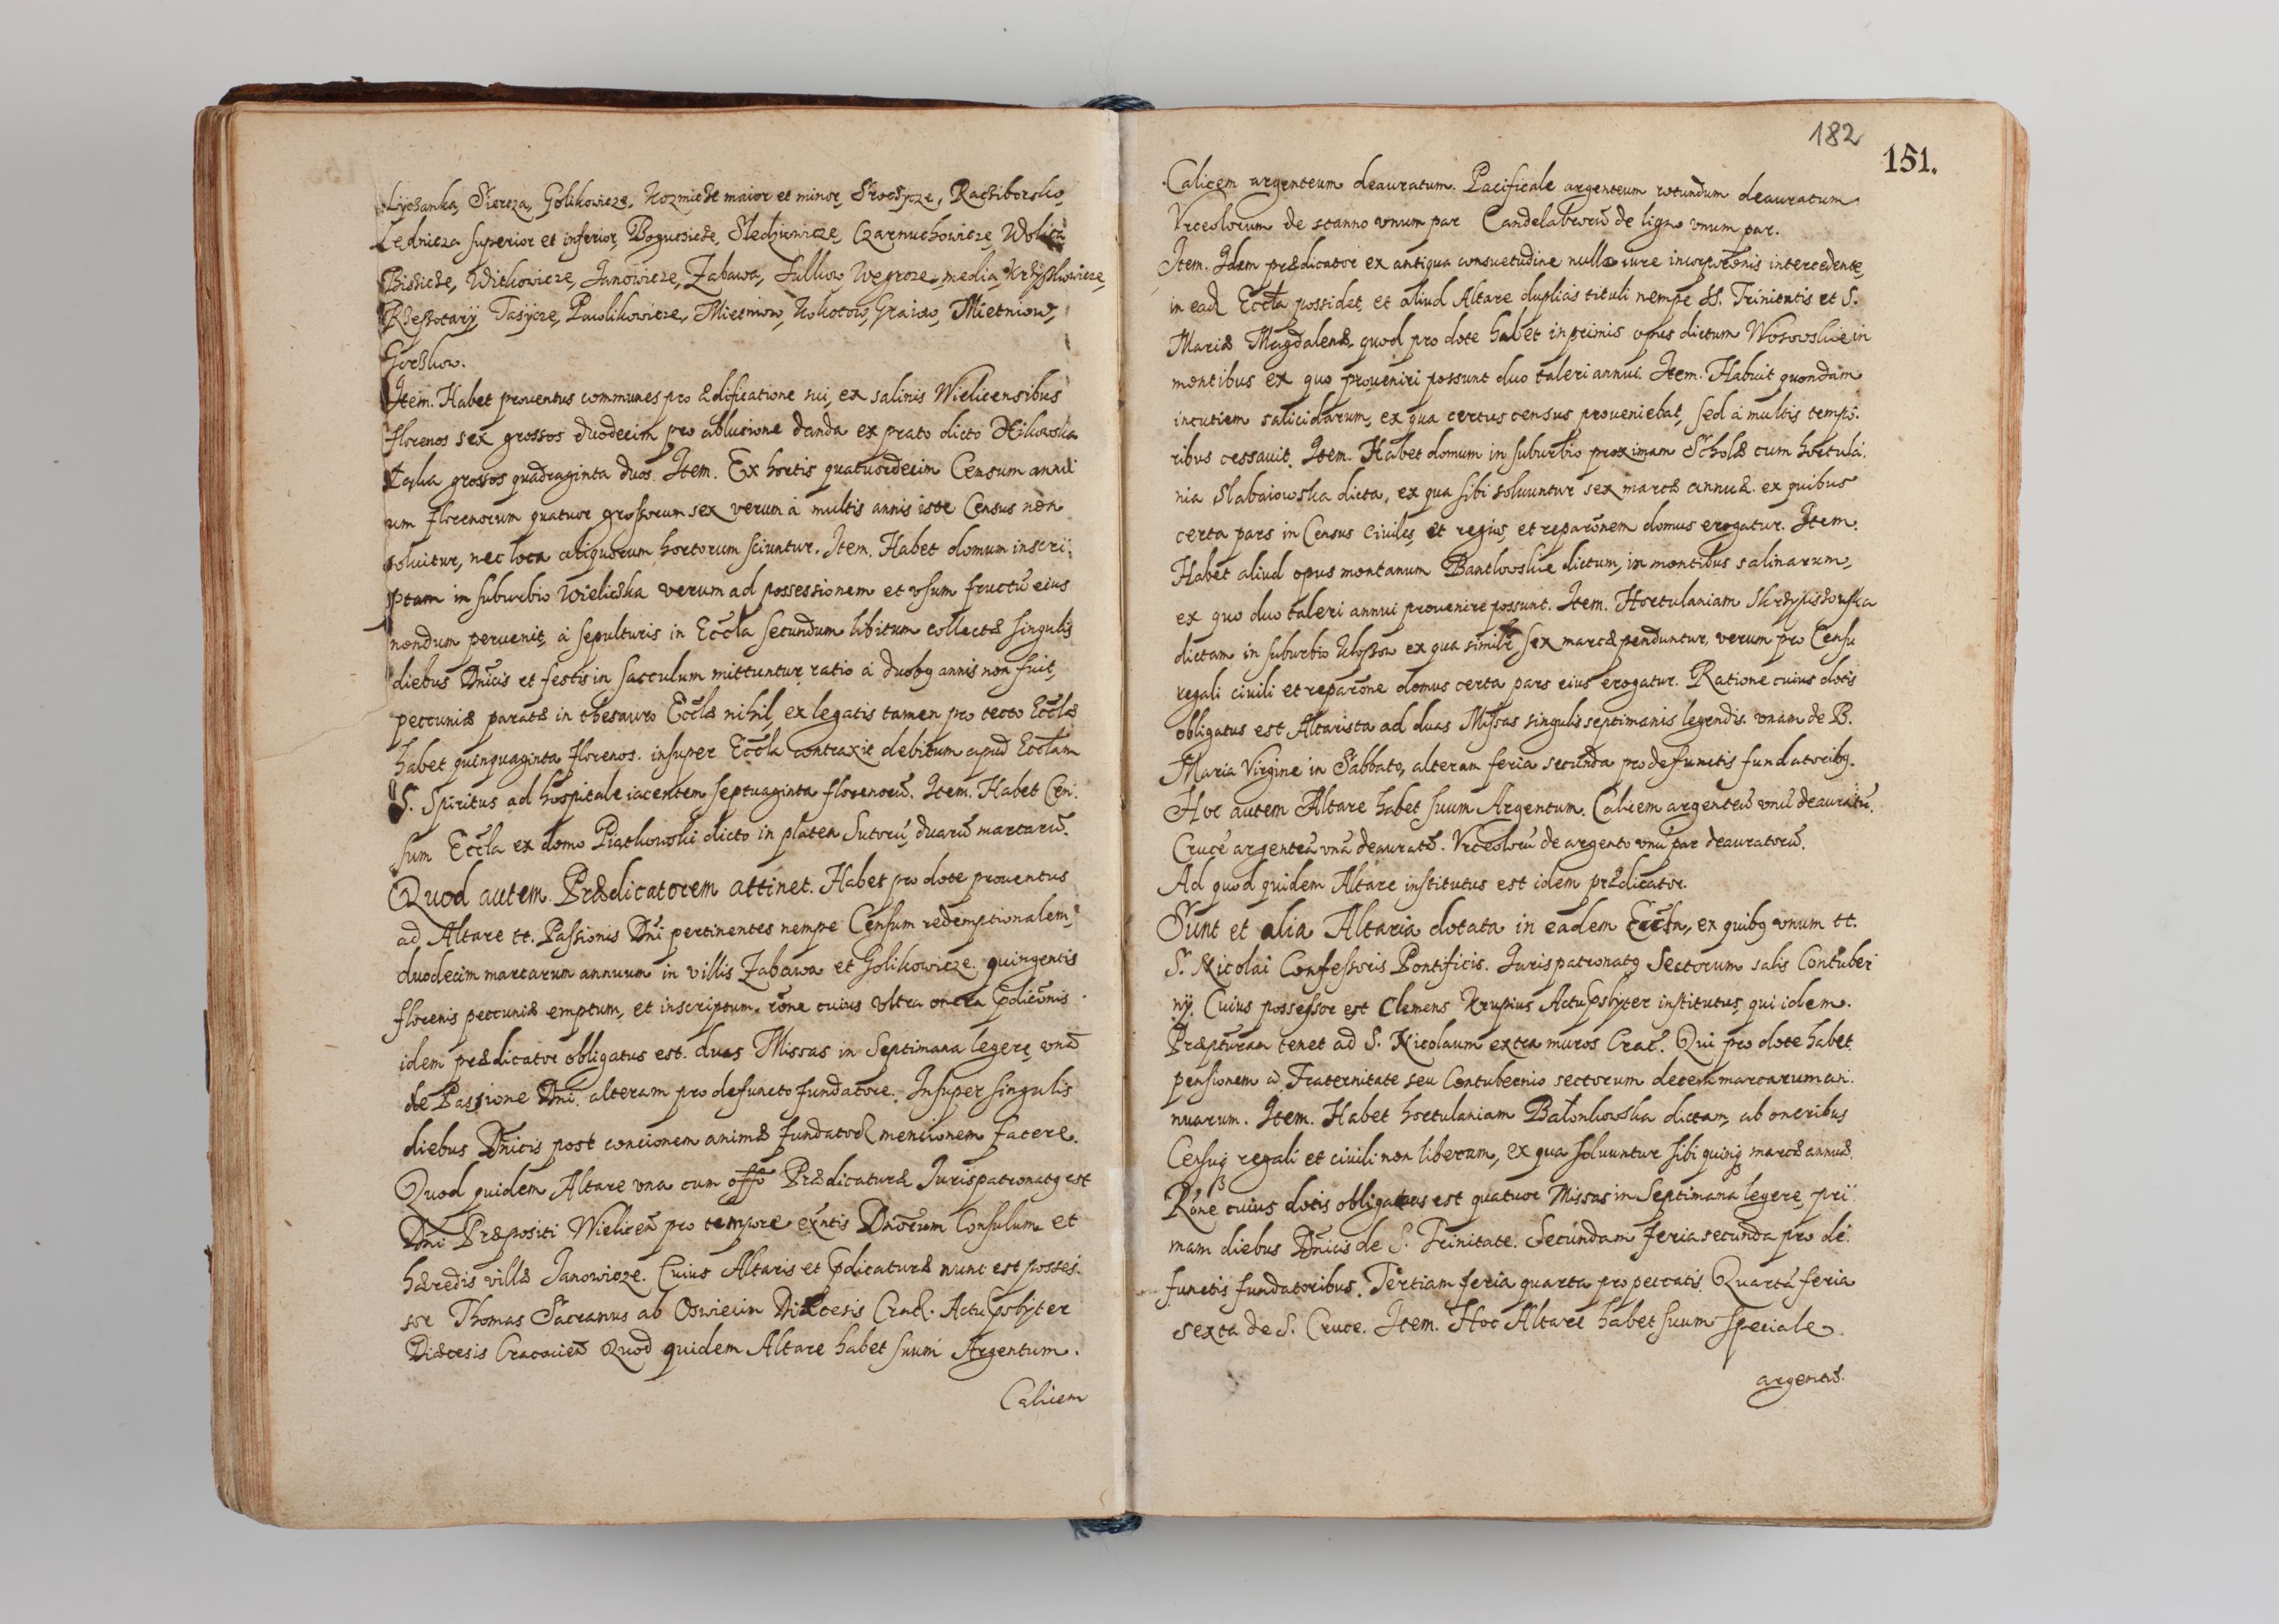 Lyczanka, Siercza, Golikowicze, Kozmicze maior et minor, Strochycze, Racziborsko,
Lednicza superior et inferior, Bogucicze, Sledzieiowicze, Czarnuchowicze, Wolica
Bisicze, Witkowicze, Janowicze, Zabawa, Sulkow, Wegrzce, media, Krzyskowicze,
Rzeszotary, Tasycze, Pawlikowicze, Mietniow, Kokotow, Graiow, Mietniow,
Gorzkow.
Item. Habet prouentus communes pro ædificatione sui, ex salinis Wielicensibus
florenos sex grossos duodecim pro ablucione danda ex prato dicto
Laka grossos quadraginta duos. Item. Ex hortis quatuordecim Censum annu
um florenorum quatuor grossorum sex verum à multis annis iste Census non
soluitur, nec loca aliquorum hortorum sciuntur. Item. Habet domum inscri:
ptam in suburbio Wieliczka verum ad possessionem et vsum fructũ eius
nondum peruenit, à sepulturis in Eccla secundum libitum collectæ singulis
diebus Dnicis et festis in sacculum mittuntur, ratio à duobq annis non fuit,
peccuniæ paratæ in thesauro Ecclæ nihil, ex legatis tamen pro tecto Ecclæ
habet quinquaginta florenos. insuper Eccla contraxit debitum apud Ecclam
S. Spiritus ad hospitale iacentem septuaginta florenorũ. Item. Habet Cen:
sum Eccla ex domo Piątkowski dicto in platea Sutorũ, duarũ marcarũ.
Quod autem Prædicatorem attinet. Habet pro dote prouentus
ad Altare tt. Passionis Dni pertinentes nempe Censum redemptionalem,
duodecim marcarum annuum in villis Zabawa et Golikowicze. quingentis
florenis peccuniæ emptum, et inscriptum. rône cuius vltra onera pdicônis
idem prædicator obligatus est. duas Missas in Septimana legere, vnã
de Passione Dni. alteram pro defuncto fundatore. Insuper singulis
diebus Dnicis post concionem animæ fundatoris mencionem facere.
Quod quidem Altare vna cum offo Prædicaturæ Jurispatronatq est
Dni Præpositi Wielicen pro tempore exntis Dnorum Consulum et
hæredis villæ Janowicze. Cuius Altaris et pdicaturæ nunc est posses:
sor Thomas Sacranus ab Oswiecim Diæcesis Crac. Actu psbyter
Diæcesis Cracouien Quod quidem Altare habet suum Argentum.
Calicem
182
151.
Calicem argenteum deauratum. Pacificale argenteum rotundum deauratum.
Vrceolorum de stanno vnum par Candelabrorũ de ligno vnum par.
Item. Idem prædicator ex antiqua consuetudine nullo iure incorporônis intercedente,
in ead Eccla possidet, et aliud Altare duplicis tituli nempe SS. Trinitatis et S.
Mariæ Magdalenæ, quod pro dote habet inprimis opus dictum Wosowskie in
montibus ex quo proueniri possunt duo taleri annui. Item. Habuit quondam
incutiem salicidarum, ex qua certus census proueniebat, sed à multis tempo:
ribus cessauit. Item. Habet domum in suburbio proximam Scholæ cum hortula:
nia Slabaiowska dicta, ex qua sibi soluuntur sex marcæ annuæ. ex quibus
certa pars in Census ciuiles, et regius, et reparônem domus erogatur. Item.
Habet aliud opus montanum Bantkowskie dictum, in montibus salinarum,
ex quo duo taleri annui prouenire possunt. Item. Hortulaniam
dictam in suburbio Klossow ex qua similr, sex marcæ penduntur, verum pro Censu
regali ciuili et reparône domus certa pars eius erogatur. Ratione cuius dotis
obligatus est Altarista ad duas Missas singulis septimanis legendis. vnam de B.
Maria Virgine in Sabbato, alteram feria secunda pro defunctis fundatoribq.
Hoc autem Altare habet suum Argentum. Calicem argenteũ vnũ deauratũ.
Crucẽ argenteã vnã deauratã. Vrceolorũ de argento vnũ par deauratorũ.
Ad quod quidem Altare institutus est idem prædicator.
Sunt et alia Altaria dotata in eadem Eccla, ex quibq vnum tt.
S. Nicolai Confessoris Pontificis. Jurispatronatq Sectorum salis Contuber
nij. Cuius possessor est Clemens Krupius Actu psbyter institutus, qui idem
Præpturam tenet ad S. Nicolaum extra muros Crac. Qui pro dote habet
pensionem à Fraternitate seu Contubernio sectorum decem marcarum an:
nuarum. Item. Habet hortulaniam Batonkowska dictam, ab oneribus
Censuq regali et ciuili non liberam, ex qua soluuntur sibi quinq marcæ annuæ.
Rône cuius dotis obligatus est quatuor Missas in Septimana legere, pri
mam diebus Dnicis de S. Trinitate. Secundam feria secunda pro de:
functis fundatoribus. Tertiam feria quarta pro peccatis. Quartã feria
sexta de S. Cruce. Item. Hoc Altare habet suum speciale
argentũ.